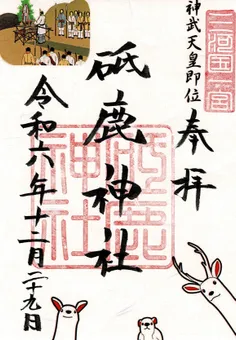 三河国一宮
神武天皇即位
奉拝
砥鹿神社
砥鹿神社
令和六年十二月二十九日